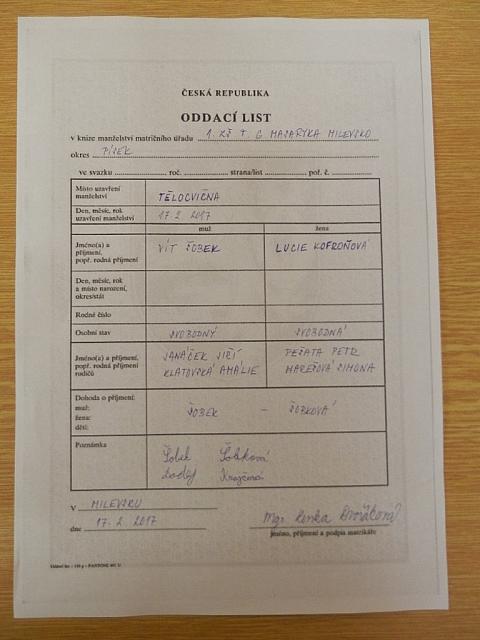 ČESKÁ REPUBLIKA
ODDACÍ LIST
v knize manželství matričního úřadu 1. ZŠ T. G MASARYKA MILEVSKO
okres PÍSEK
ve svazku roč. strana/list poř. č.
Místo uzavření manželství TĚLOCVIČNA
Den, měsíc, rok uzavření manželství 17. 2. 2017
muž žena
Jméno(a) a příjmení, popř. rodná příjmení VÍT ŠOBEK LUCIE KOFROŇOVÁ
Den, měsíc, rok a místo narození, okres/stát
Rodné číslo
Osobní stav SVOBODNÝ SVOBODNÁ
Jméno(a) a příjmení, popř. rodná příjmení rodičů
JANÁČEK JIŘÍ PEŠATA PETR
KLATOVSKÁ AMÁLIE MAREŠOVÁ SIMONA
Dohoda o příjmení:
muž:
žena: ŠOBEK – ŠOBKOVÁ
dětí:
Poznámka
Šobek Šobková
Krejčová
V MILEVSKU
dne 17. 2. 2017
Mgr. Lenka Dvořáková
jméno, příjmení a podpis matrikáře